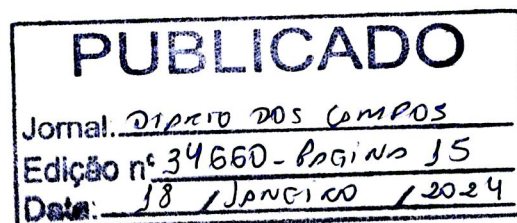 PUBLICADO
Jornal: DIARIO DOS CAMPOS
Edição nº 34660 - PAGINA 15
Data: 18 / JANEIRO / 2024